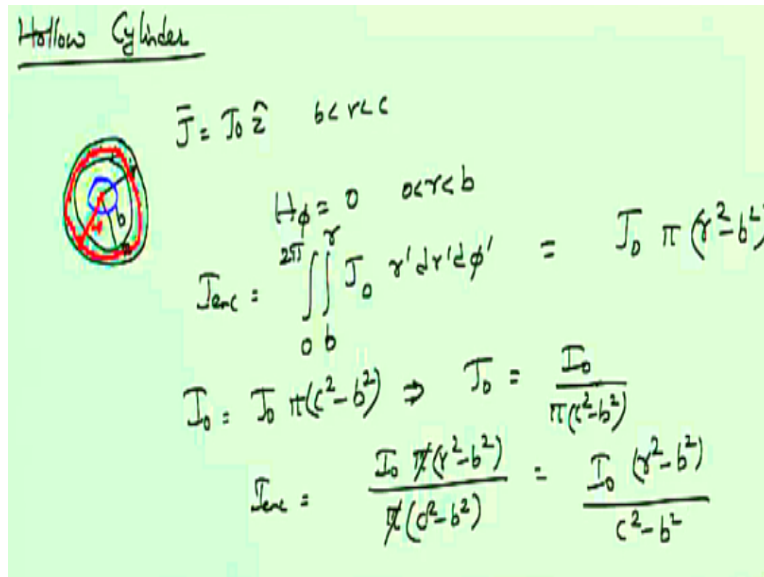 Hollow Cylinder
J̄ = J₀ ẑ b<r<c
H_ϕ = 0 0<r<b
I_enc = ∫₀^{2π} ∫_b^r J₀ r' dr' dϕ' = J₀ π (r² - b²)
I₀ = J₀ π(c² - b²) ⇒ J₀ = I₀ / π(c² - b²)
I_enc = I₀ π (r² - b²) / π (c² - b²) = I₀ (r² - b²) / c² - b²